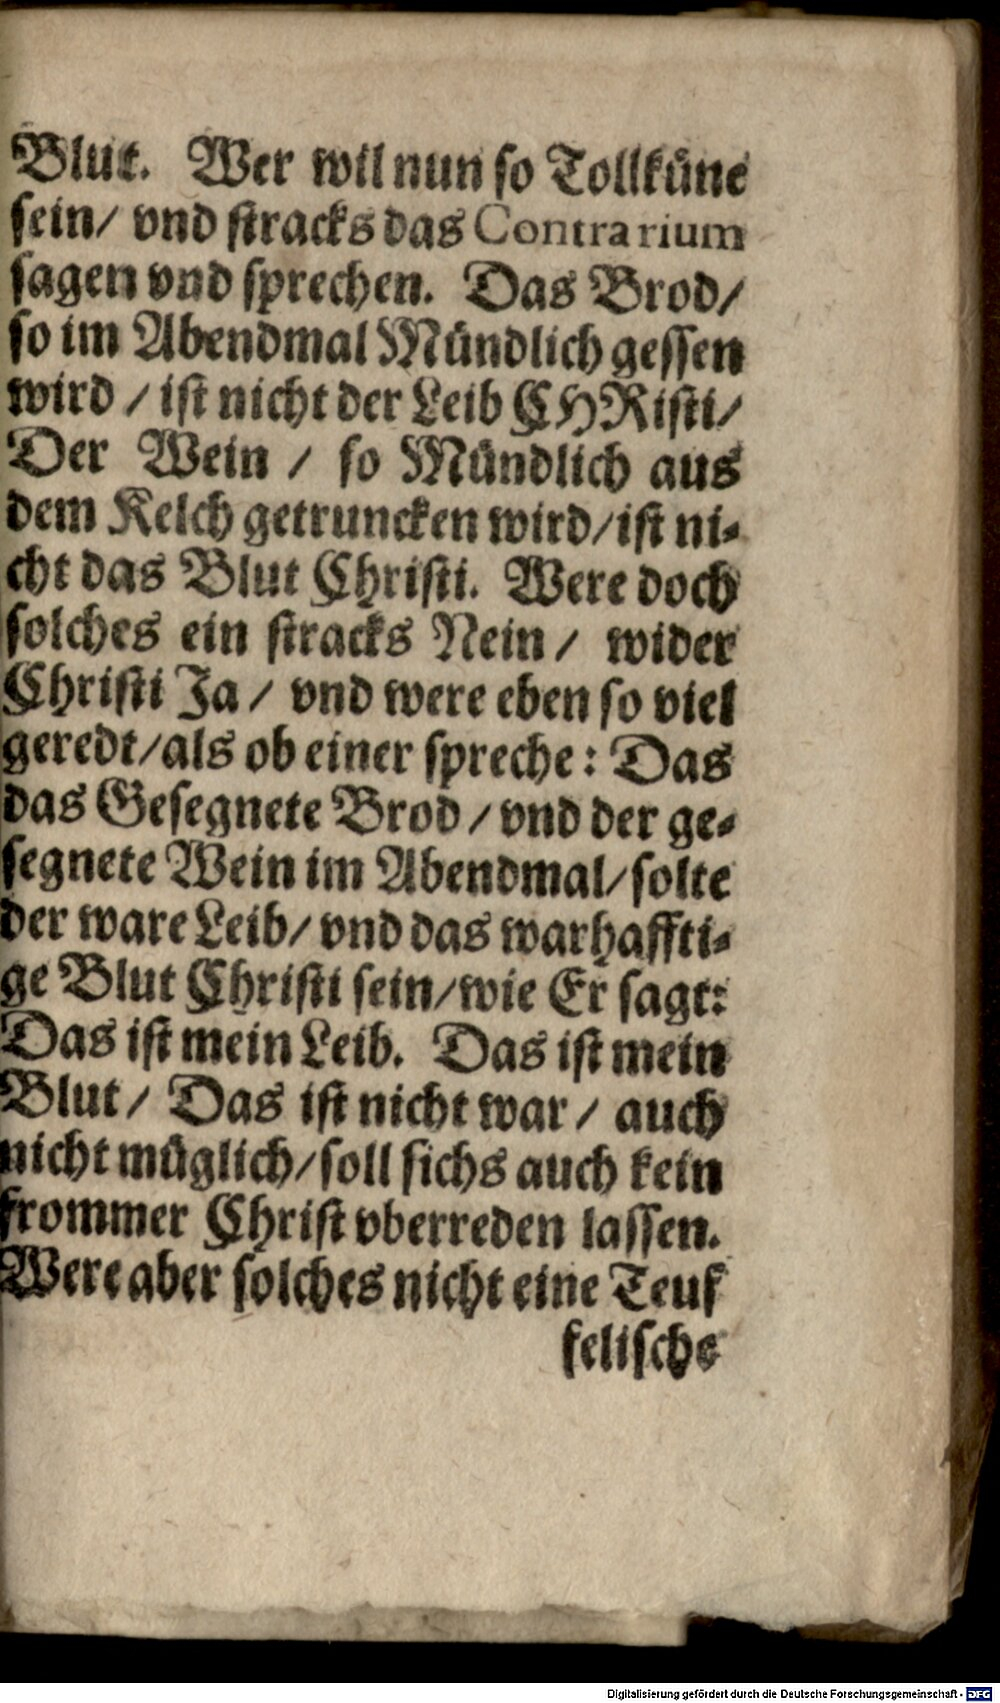 Blut. Wer wil nun so Tollküne
sein/ vnd stracks das Contrarium
sagen vnd sprechen. Das Brod/
so im Abendmal Mündlich gessen
wird / ist nicht der Leib CHRisti/
Der Wein / so Mündlich aus
dem Kelch getruncken wird/ist ni-
cht das Blut Christi. Were doch
solches ein stracks Nein / wider
Christi Ja / vnd were eben so viel
geredt/als ob einer spreche: Das
das Gesegnete Brod / vnd der ge-
segnete Wein im Abendmal/solte
der ware Leib/ vnd das warhaffti-
ge Blut Christi sein/wie Er sagt:
Das ist mein Leib. Das ist mein
Blut/ Das ist nicht war/ auch
nicht müglich/soll sichs auch kein
frommer Christ vberreden lassen.
Were aber solches nicht eine Teuf
felische
Digitalisierung gefördert durch die Deutsche Forschungsgemeinschaft - DFG